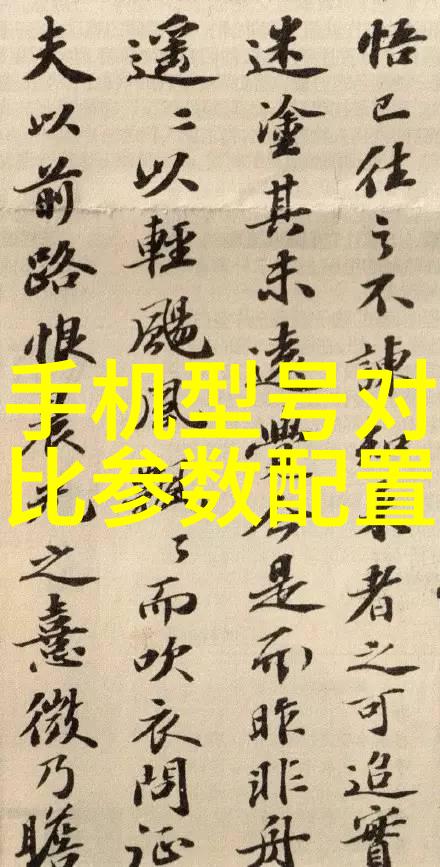 悟已往之不諫知来者之可追實
迷塗其未遠覺今是而昨非舟
遙〻以輕颺風飄〻而吹衣問征
夫以前路恨晨光之熹微乃瞻
手机型号对
比参数配置